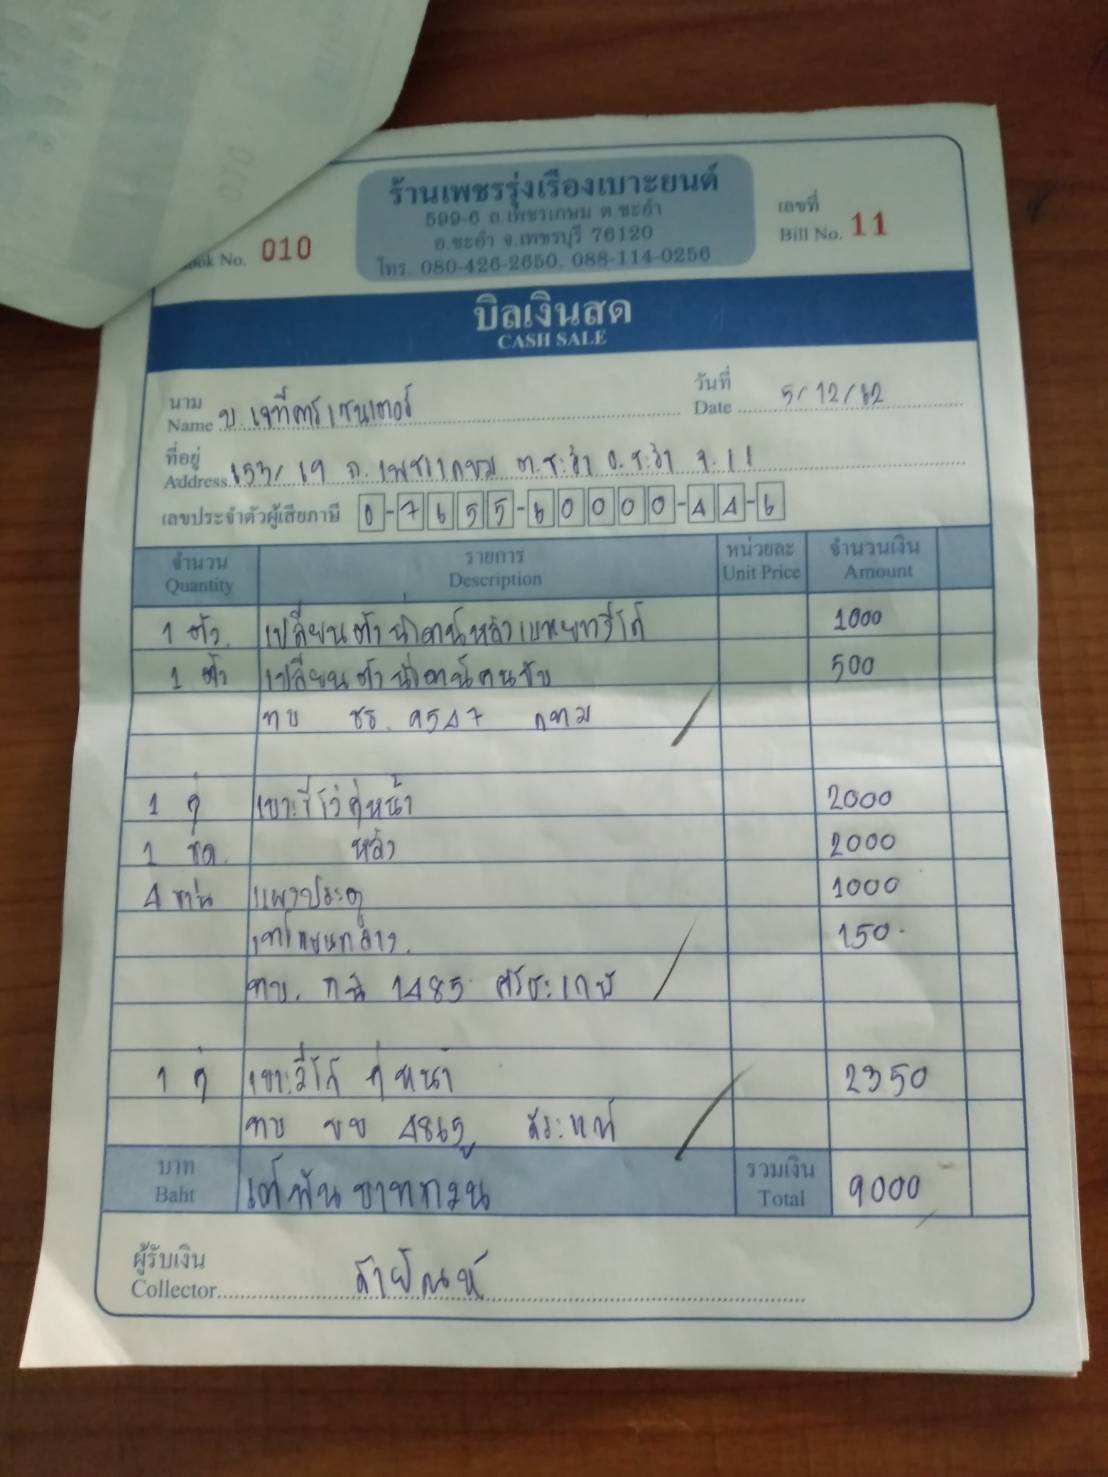 ร้านเพชรรุ่งเรืองเบาะยนต์
599-6 ถ.เพชรเกษม ต.ชะอำ
อ.ชะอำ จ.เพชรบุรี 76120
โทร. 080-426-2650, 088-114-0256
ook No. 010
เลขที่
Bill No. 11
บิลเงินสด
CASH SALE
นาม
Name บ. เจที่คาร์เซนเตอร์
วันที่
Date 5/12/62
ที่อยู่
Address 653/19 ถ. เพชรเกษม ต.ชะอำ อ.ชะอำ จ.
เลขประจำตัวผู้เสียภาษี 0-7655-60000-44-6
จำนวน รายการ หน่วยละ จำนวนเงิน
Quantity Description Unit Price Amount
1 ตัว เปลี่ยนตัว หลัง 1000
1 ตัว เปลี่ยนตัว คนขับ 500
ทบ 9547 กทม
1 คู่ เบาะวีโก้คู่หน้า 2000
1 ชุด หลัง 2000
4 บาน แผงประตู 1000
150
ทบ. 1485 ศรีสะเกษ
1 คู่ เบาะวีโก้ คู่หน้า 2350
ทบ
บาท
Baht เก้าพันบาทถ้วน
รวมเงิน
Total 9000
ผู้รับเงิน
Collector